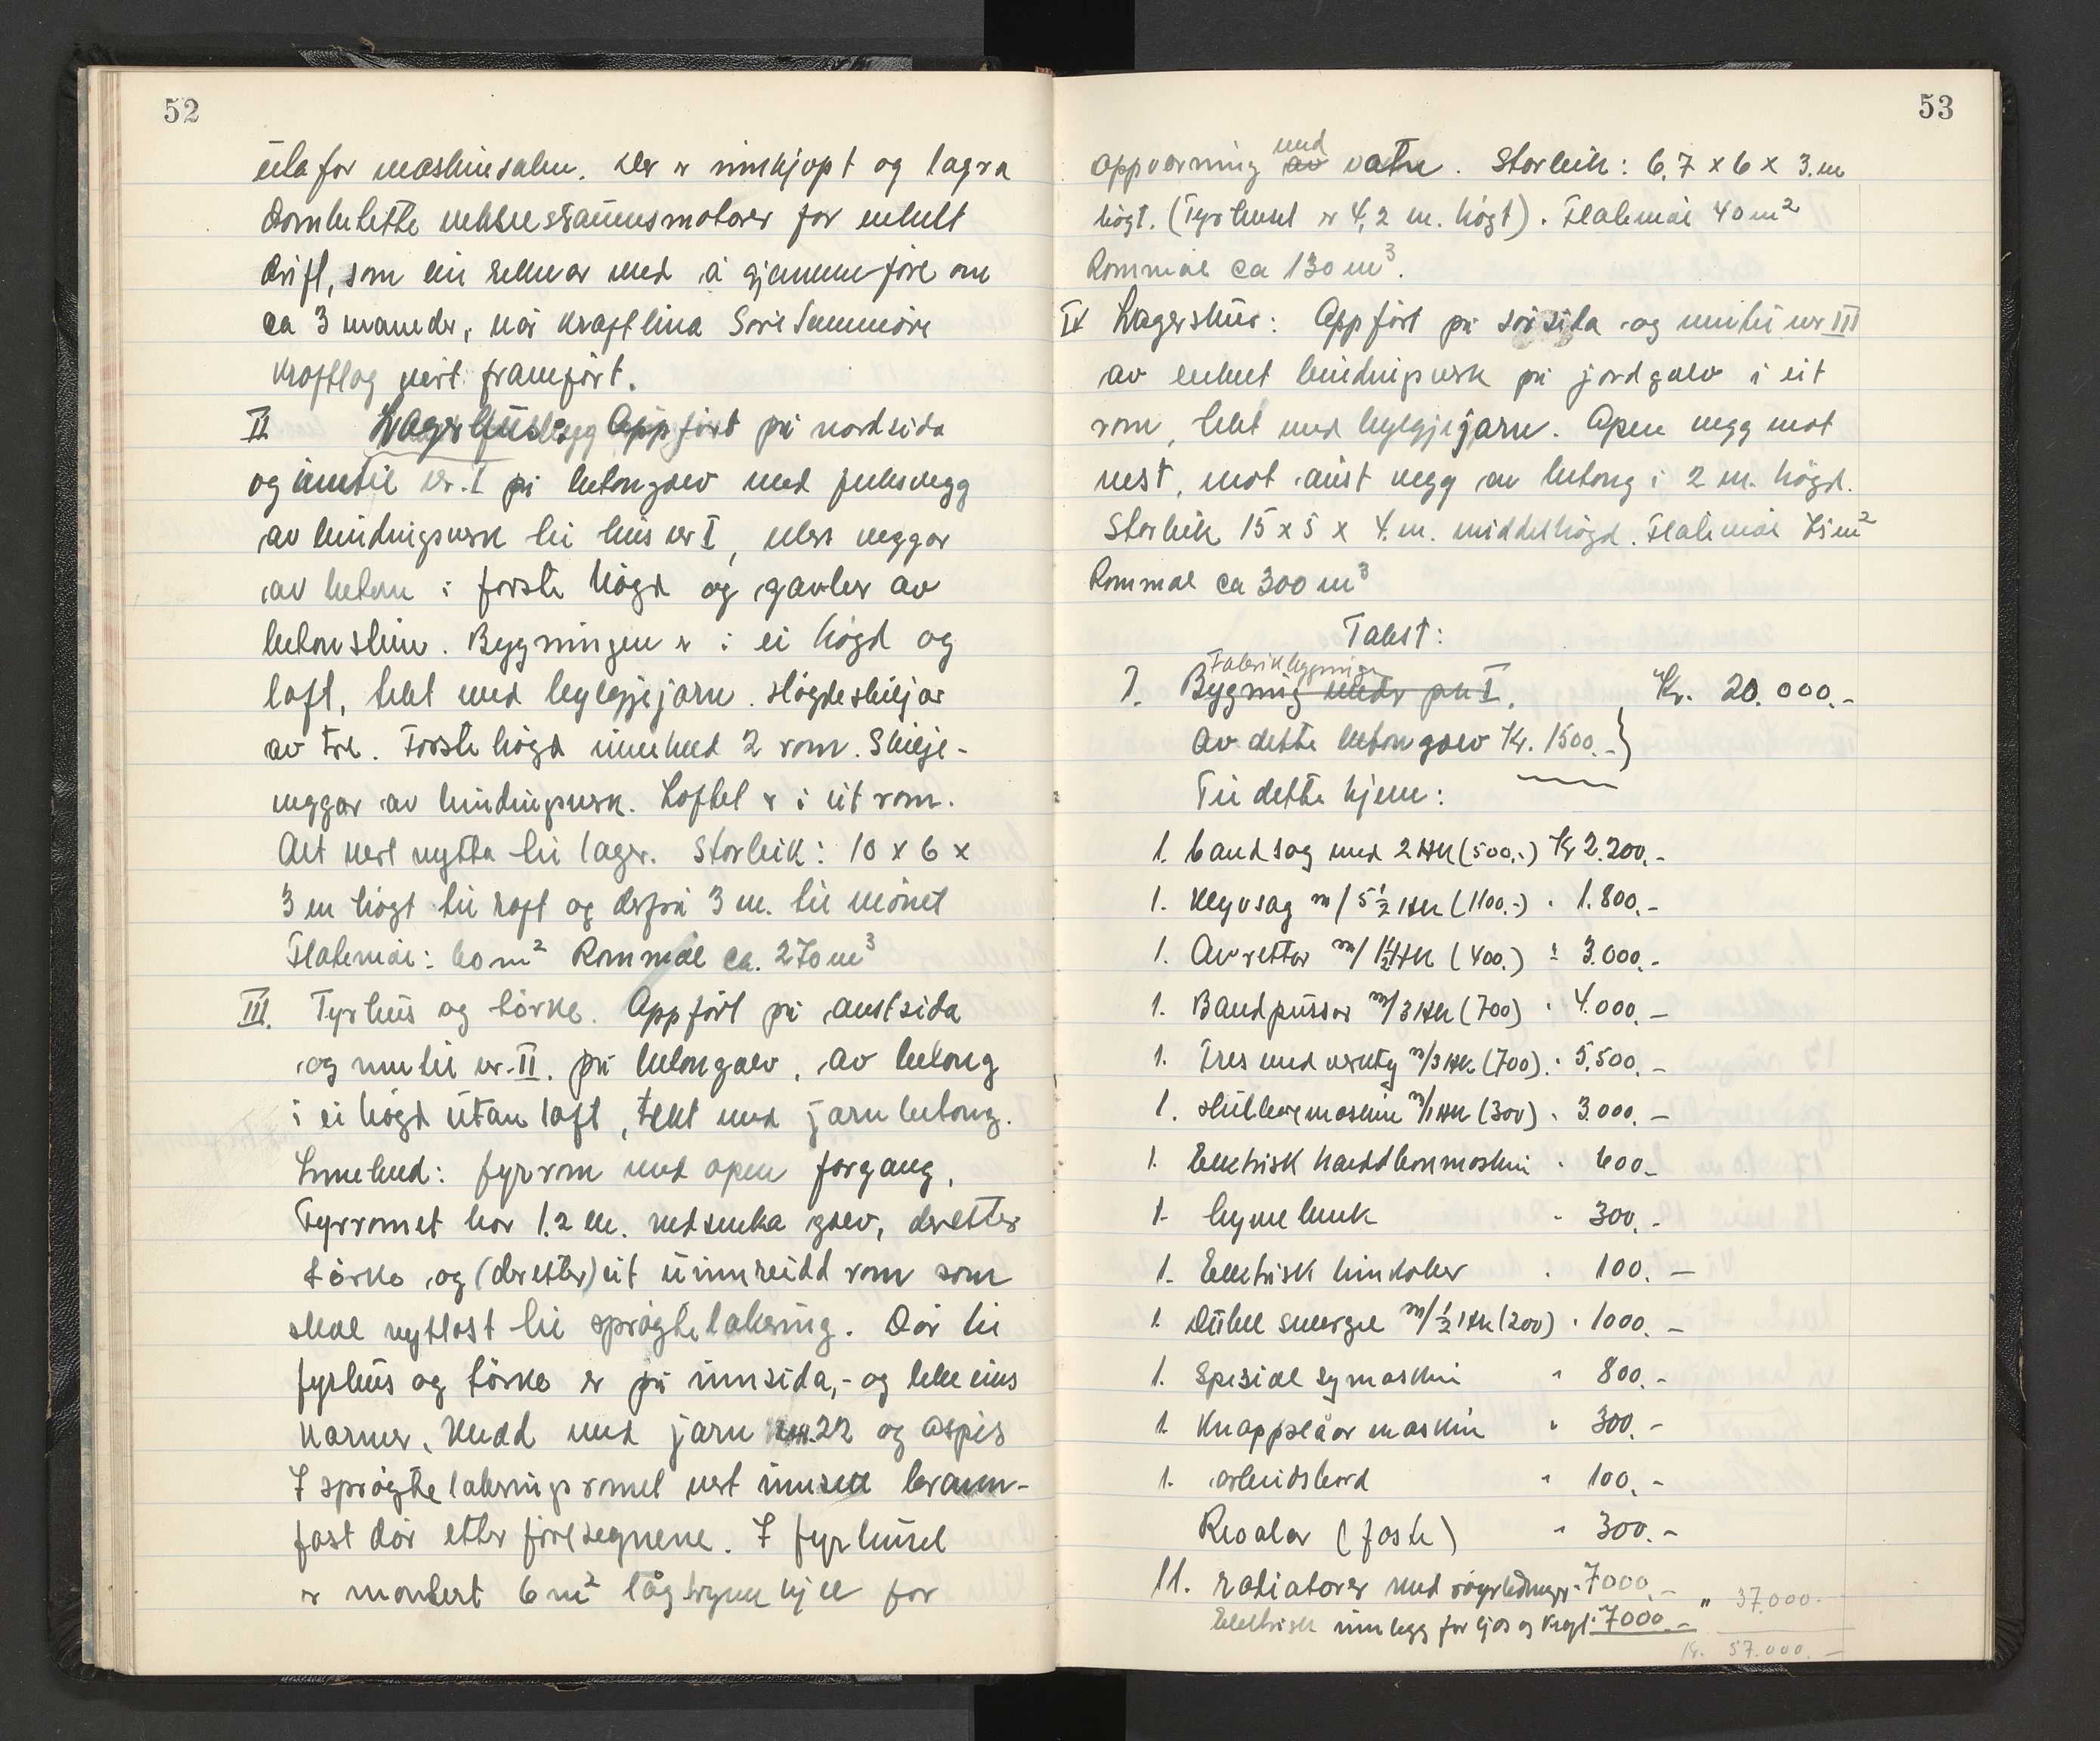 52
for maskinsalen. Der er innkjøpt og lagra
vekselstraumsmotorer for enkelt
drift, som ein reknar med å gjennomføre om
ca 3 maneder, når kraftlina Søre Sunnmøre
Kraftlag vert framført.
II Lagerhus Oppført på nordsida
og inntil nr. I på betongolv med fellesvegg
av bindingsverk til hus nr I, elers veggar
av betong i første høgd og gavler av
betonstein. Bygningen er i ei høgd og
loft, tekt med bylgjejarn. Høgdeskiljar
av tre. Første høgd inneheld 2 rom. Skilje-
veggar av bindingsverk. Loftet er i eit rom.
Alt vert nytta til lager. Storleik: 10 x 6 x
3 m høgt til raft og derfrå 3 m. til mønet
Flatemål: 60 m² Rommål ca. 270 m³
III. Fyrhus og tørke. Oppført på austsida
og inntil nr. II. på betongolv, av betong
i ei høgd utan loft, tekt med jarnbetong.
Inneheld: fyrrom med open forgang,
Fyrromet har 1.2 m. nedsenka golv, deretter
tørke og (deretter) eit uinnreidd rom som
skal nyttast til sprøytelakering. Dør til
fyrhus og tørke er på innsida,- og
karmer, kledd med jarn 22 og aspes
I sprøytelakeringsromet vert innsett brann-
fast dør etter føresegnene. I fyrhuset
er montert 6 m² lågtrykkkjel for
53
oppvarming av med vatn. Storleik: 6,7 x 6 x 3. m
høgt. (Fyrhuset er 4,2 m. høgt). Flatemål 40 m²
Rommål ca 130 m³.
IV Lagerskur: Oppført på sørsida og inntil nr III
av enkelt bindingsverk på jordgolv i eit
rom, tekt med bylgjejarn. Open vegg mot
vest, mot aust vegg av betong i 2 m. høgd.
Storleik 15 x 5 x 4. m. middelhøgd. Flatemål 75 m²
Rommål ca 300 m³
Takst:
Fabrikkbygning
1. Bygning under pkt I. Kr. 20.000.-
Av dette betongolv Kr. 1500.- }
Til dette kjem:
1. bandsag med 2 HK (500.-) Kr 2.200.-
1. Kløyvsag m/ 5½ HK (1100.-) " 1.800.-
1. Avrettar m/ 1½ HK (400.) " 3.000.-
1. Bandpussar m/3 HK (700) " 4.000.-
1. Fres med verkty m/3 HK (700) " 5.500.-
1. Hullboremaskin m/1 HK (300) " 3.000.-
1. Elektrisk handbormaskin " 600.-
1. høvelbenk " 300.-
1. Elektrisk limkoker " 100.-
1. Dubbel smergel m/½ HK (200) " 1000.-
1. Spesial symaskin " 800.-
1. Knappslåarmaskin " 300.-
1. arbeidsbord " 100.-
Reolar (faste) " 300.-
11. radiatorer med røyrledningar " 7000.-
Elektrisk innlegg for ljos og kraft " 7000.- " 37.000.-
Kr. 57.000.-